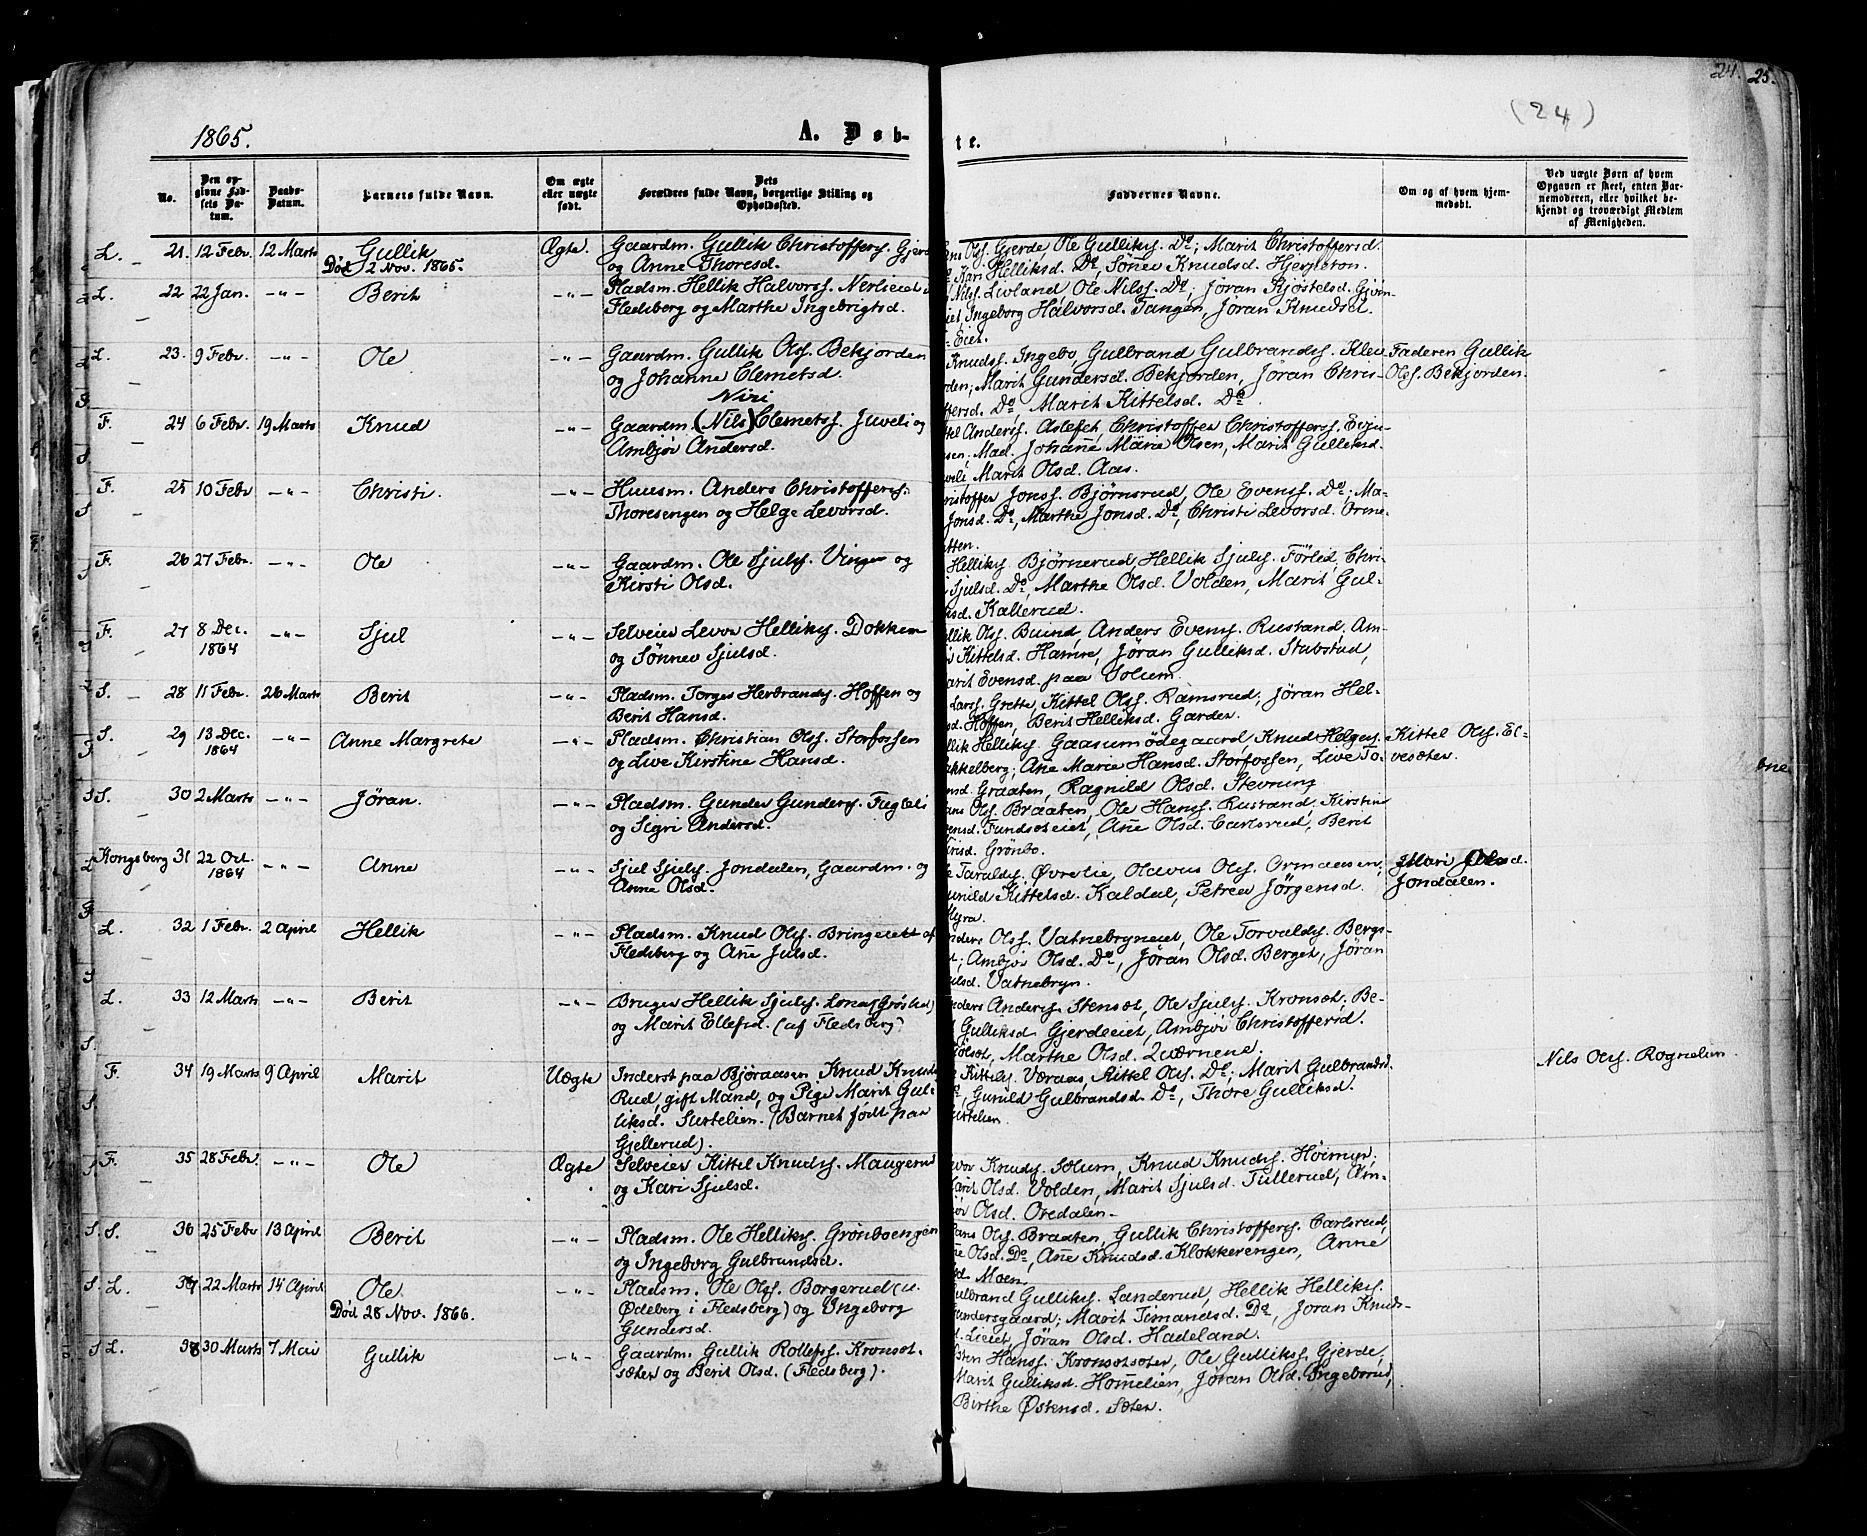 24. 25.
(24)
1865. A. Døb-
te.
No. Den opgivne Fødsels Datum. Daabs-Datum. Barnets fulde Navn. Om ægte eller uægte født. Dets Forældres fulde Navn, borgerlige Stilling og Opholdssted.
Faddernes Navne. Om og af hvem hjemmedøbt. Ved uægte Børn af hvem Opgaven er skeet, enten Barnemoderen, eller hvilket bekjendt og troværdigt Medlem af Menigheden.
L. 21. 12 Febr. 12 Marts Gullik Ægte. Gaardm. Gullik Christoffers. Gjerde
Død 2 Nov. 1865. og Anne Thoresd.
Ols. Gjerde, Ole Gulliks. Do; Marit Christoffersd.
Kari Helliksd. Do, Sønev Knudsd. Hjerpeton.
L. 22 22 Jan. -"- Berit -"- Pladsm. Hellik Halvors. Nerlieiet i
Flesberg og Marthe Ingebrigtsd.
Nils. Livland, Ole Nils. Do; Jøran Kjøstelsd. Gjem-
eiet, Ingeborg Halvorsd. Tangen, Jøran Knudsd.
Eiet.
L. 23. 9 Febr. -"- Ole -"- Gaardm. Gullik Ols. Bekjorden
og Johanne Clemetsd.
Knuds. Ingebo, Gulbrand Gulbrands. Klev Faderen Gullik
den; Marit Gundersd. Bekjorden, Jøran Chris- Ols. Bekjorden.
ffersd. Do, Marit Kittelsd. Do.
F. 24 6 Febr. 19 Marts Knud -"- Niri
Gaardm. (Nils) Clemets. Juveli og
Ambjør Andersd.
tel Anders. Aslefet, Christoffer Christoffers. Evju-
sen; Mad. Johanne Marie Olsen, Marit Gulliksd.
uveli, Marit Olsd. Aas.
F. 25 10 Febr -"- Christi. -"- Huusm. Anders Christoffers.
Thoresengen og Helge Levorsd.
ristoffer Jons. Bjørnsrud, Ole Evens. Do; Ma-
Jonsd. Do, Marthe Jonsd. Do, Christi Levorsd. Orme-
tten.
F. 26 27 Febr. -"- Ole -"- Gaardm. Ole Sjuls. Vinger og
Kirsti Olsd.
Helliks. Bjørnerud, Hellik Sjuls. Førlid, Chri-
Sjulsd. Do, Marthe Olsd. Volden, Marit Gul-
sd. Kallerud.
F. 27 8 Dec. 1864 -"- Sjul -"- Selveier Levor Helliks. Dokken
og Sønnev Sjulsd.
llik Ols. Buind, Anders Evens. Rustand, Am-
Kittelsd. Hamre, Jøran Gulliksd. Stubstud,
arit Evensd. paa Solum.
S. 28 11 Febr. 26 Marts Berit -"- Pladsm. Torges Herbrands. Hoffen og
Berit Hansd.
Lars. Grette, Kittel Ols. Ramsrud; Jøran Hel-
sd. Hoffen, Berit Helliksd. Garder.
S. 29 13 Dec. 1864 -"- Anne Margrete -"- Pladsm. Christian Ols. Storfossen
og Live Kirstine Hansd.
llik Helliks. Gaasumødegaard, Knud Helges. Kittel Ols. El-
kkelberg; Ane Marie Hansd. Storfossen, Live To- vesæter.
nsd. Graaten, Ragnild Olsd. Stevning
S. 30 2 Marts -"- Jøran. -"- Pladsm. Gunder Gunders. Fuglali
og Sigri Andersd.
ans Ols. Braaten, Ole Hans. Rustand, Kirstin
ensd. Tundsoteiet, Ane Olsd. Carlsrud, Berit
risd. Grønbo.
Kongsberg 31 22 Oct. 1864 -"- Anne -"- Sjul Sjuls. Jondalen, Gaardm. og
Anne Olsd.
Taralds. Øvrelie, Olavus Ols. Ormaasen; Mari Olsd.
unild Kittelsd. Kaldal, Petrea Jörgensd. Jondalen.
Myra.
L. 32 1 Febr. 2 April Hellik -"- Pladsm. Knud Ols. Bringeiett af
Flesberg og Ane Julsd.
nders Ols. Vatnebryneiet, Ole Torvalds. Bergs-
t; Ambjør Olsd. Do, Jøran Olsd. Berget, Jøran
ulsd. Vatnebryn.
L. 33 12 Marts -"- Berit -"- Bruger Hellik Sjuls. Lonas(Grøslid)
og Marit Ellefsd. (af Flesberg)
nders Anders. Stensæt, Ole Sjuls. Kronsæt, Be-
Gulliksd. Gjerdeeiet, Ambjør Christoffersd.
Marthe Olsd. Qværnene.
F. 34 19 Marts 9 April Marit Uægte Inderst paa Bjøraasen Knud Knuds.
Rud, gift Mand, og Pige Marit Gul-
liksd. Surtelien. (Barnet født paa
Gjellerud).
Kittels. Væraas, Kittel Ols. Do; Marit Gulbrandsd. Nils Ols. Rognelien.
Gunild Gulbrandsd. Do, Thore Gulliksd.
urtelien.
F. 35 28 Febr. -"- Ole Ægte Selveier Kittel Knuds. Maugerud
og Kari Sjulsd.
evor Knuds. Solum, Knud Knuds. Høimyr;
arit Olsd. Volden, Marit Sjulsd. Tullerud, Am-
jør Olsd. Overdalen.
S. 36 25 Febr 13 April Berit -"- Pladsm. Ole Helliks. Grønboengen
og Ingeborg Gulbrandsd.
ans Ols. Braaten, Gullik Christoffers. Carlsrud,
ne Olsd. Do, Ane Knudsd. Klokkerengen, Anne
sd. Moen.
L. 37 22 Marts 14 April Ole. -"- Pladsm. Ole Ols. Borgerud (u.
Død 28 Nov. 1866. Ødeberg i Flesberg) og Ingeborg
Gundersd.
ulbrand Gulliks. Landerud, Hellik Helliks.
undersgaard; Marit Simansd. Do, Jøran Knuds-
d. Lieiet, Jøran Olsd. Hadeland.
L. 38 30 Marts 7 Mai Gullik -"- Gaardm. Gullik Rollefs. Kronsæt-
sæter og Berit Olsd. (Flesberg).
sten Hans. Kronsætsæter, Ole Gulliks. Gjerde,
Marit Gulliksd. Homelien, Jøran Olsd. Ingeborud,
Birthe Østensd. Sæter.